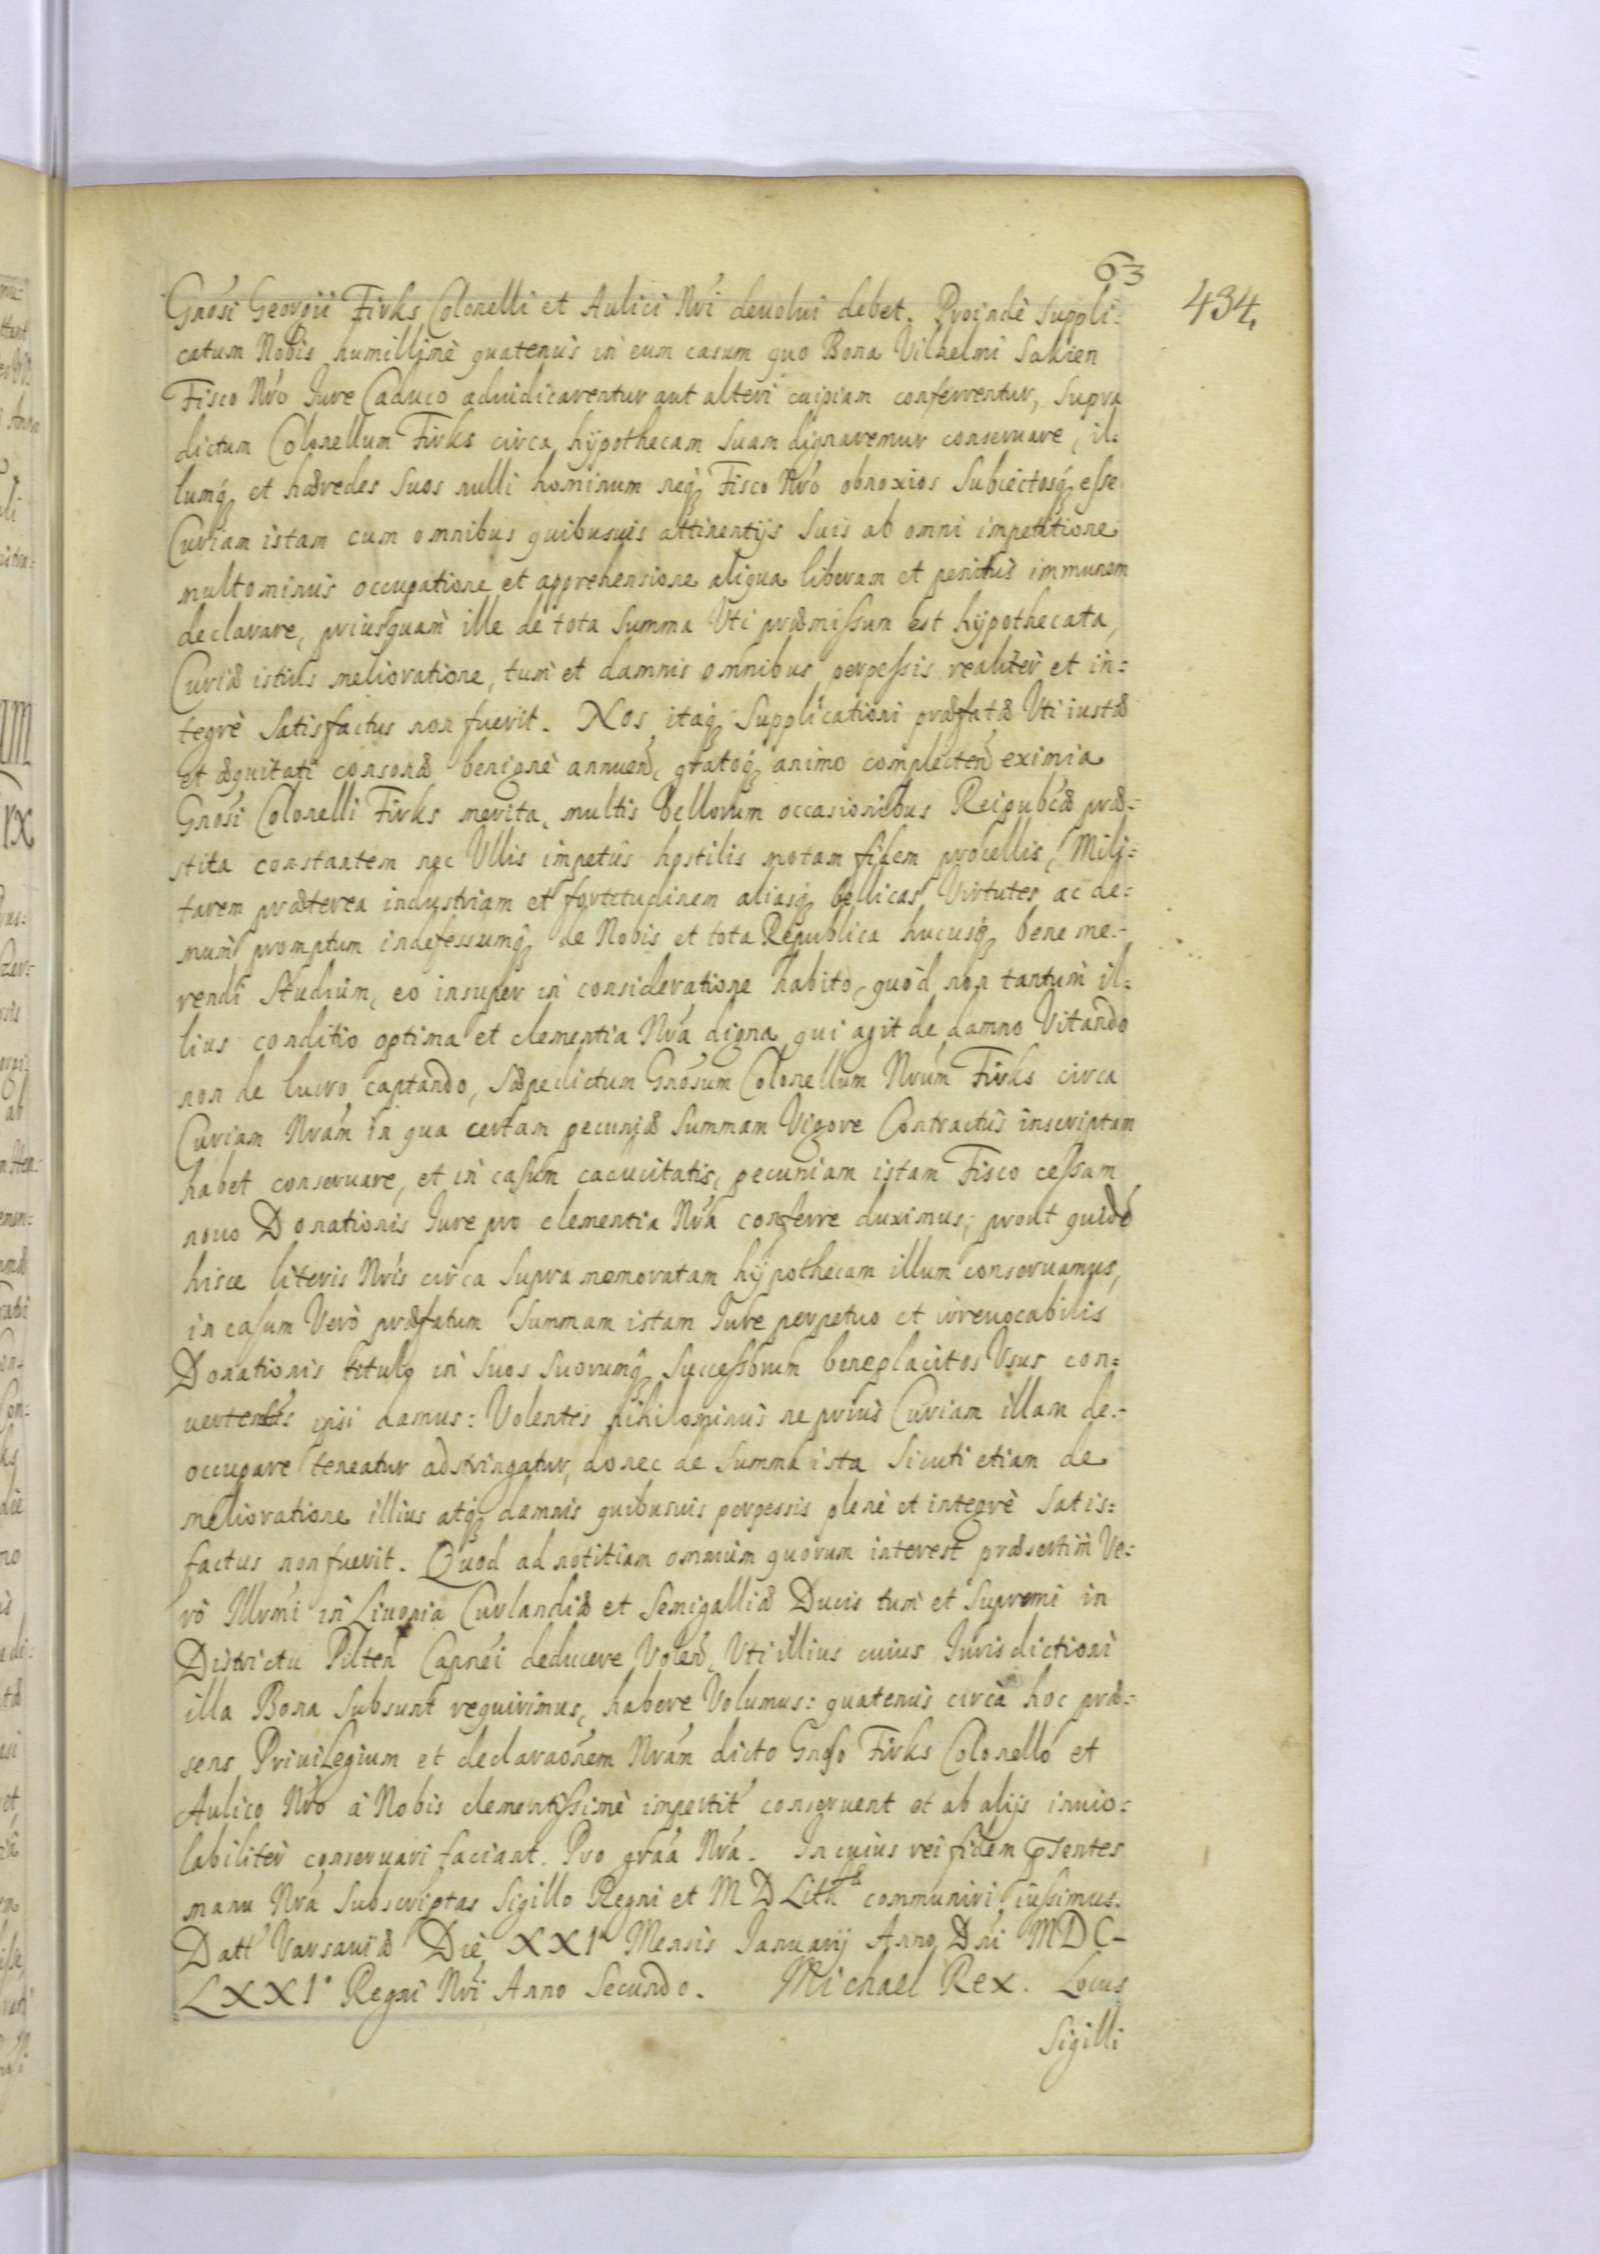 63
434.
Gnosi Georgii Firks Colonelli et Aulici Nri deuolui debet. Proindè suppli:
catum Nobis humillimè quatenus in eum casum quo Bona Vilhelmi Sakien
Fisco Nro Jure Caduco adiudicarentur aut alteri cuipiam conferrentur, supra
dictum Colonellum Firks circa hÿpothecam suam dignaremur conseruare, il:
lumq; et hæredes suos nulli hominum neq; Fisco Nro obnoxios subiectosq; esse
Curiam istam cum omnibus quibusuis attinentijs suis ab omni impetitione
multominus occupatione et apprehensione aliqua liberam et penitus immunem
declarare, priusquam ille de tota summa Vti præmissum est hÿpothecata,
Curiæ istius melioratione, tum et damnis omnibus perpessis realiter et in:
tegrè satisfactus non fuerit. Nos itaq; supplicationi præfatæ Vti iustæ
et æquitati consonæ benignè annuen, gratoq; animo complecten eximia
Gnosi Colonelli Firks merita, multis bellorum occasionibus Reipubcæ præ:
stita constantem nec Vllis impetus hostilis motam fidem procellis, Mili:
tarem præterea industriam et fortitudinem aliasq; bellicas Virtutes, ac de:
mum promptum indefessumq; de Nobis et tota Republica hucusq; bene me:
rendi studium, eo insuper in consideratione habito, quod non tantum il:
lius conditio optima et clementia Nra digna qui agit de damno Vitando
non de lucro captando, sæpedictum Gnosum Colonellum Nrum Firks circa
Curiam Nram in qua certam pecuniæ summam Vigore Contractus inscriptam
habet conseruare, et in casum caducitatis, pecuniam istam Fisco cessam
nouo Donationis Jure pro clementia Nra conferre duximus; prout quidé
hisce literis Nris circa supra memoratam hÿpothecam illum conseruamus,
in casum Verò præfatum summam istam Jure perpetuo et irreuocabilis
Donationis titulo in suos suorumq; successorum beneplacitos Vsus con:
uertendes ipsi damus: Volentes nihilominus ne prius Curiam illam de:
occupare teneatur adstringatur, donec de summa ista sicuti etiam de
melioratione illius atq; damnis quibusuis perpessis plenè et integrè satis:
factus non fuerit. Quod ad notitiam omnium quorum interest præsertim Ve:
rò Illrmi in Liuonia Curlandiæ et Semigalliæ Ducis tum et Supremi in
Districtu Pilten Capnei deducere Volen, Vti illius cuius Jurisdictioni
illa Bona subsunt requirimus, habere Volumus: quatenus circa hoc præ:
sens Priuilegium et declaraonem Nram dicto Gnoso Firks Colonello et
Aulico Nro à Nobis clementissimè impertit conseruent et ab alijs inuio:
labiliter conseruari faciant. Pro graa Nra. In cuius rei fidem pntes
manu Nra subscriptas sigillo Regni et M D Lith communiri iussimus.
Datt Varsauiæ Die XXIª Mensis Januarij Anno Dni MDC-
LXXI° Regni Nri Anno Secundo. Michael Rex. Locus
Sigilli